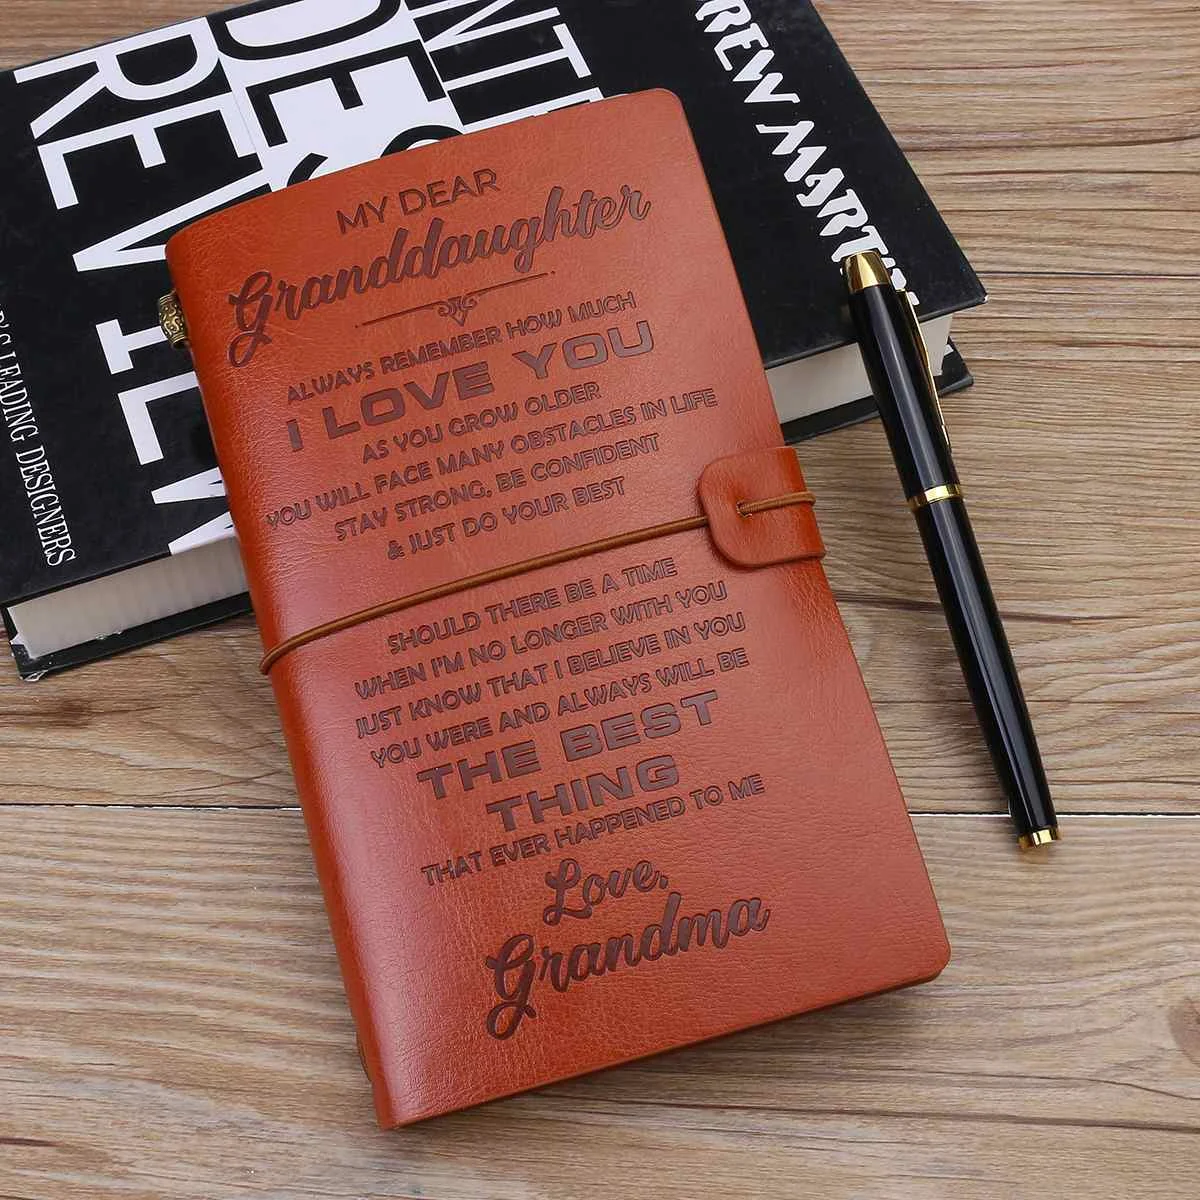 MY DEAR
Granddaughter
ALWAYS REMEMBER HOW MUCH
I LOVE YOU
AS YOU GROW OLDER
YOU WILL FACE MANY OBSTACLES IN LIFE
STAY STRONG, BE CONFIDENT
& JUST DO YOUR BEST
SHOULD THERE BE A TIME
WHEN I'M NO LONGER WITH YOU
JUST KNOW THAT I BELIEVE IN YOU
YOU WERE AND ALWAYS WILL BE
THE BEST
THING
THAT EVER HAPPENED TO ME
Love,
Grandma
LEADING DESIGNERS